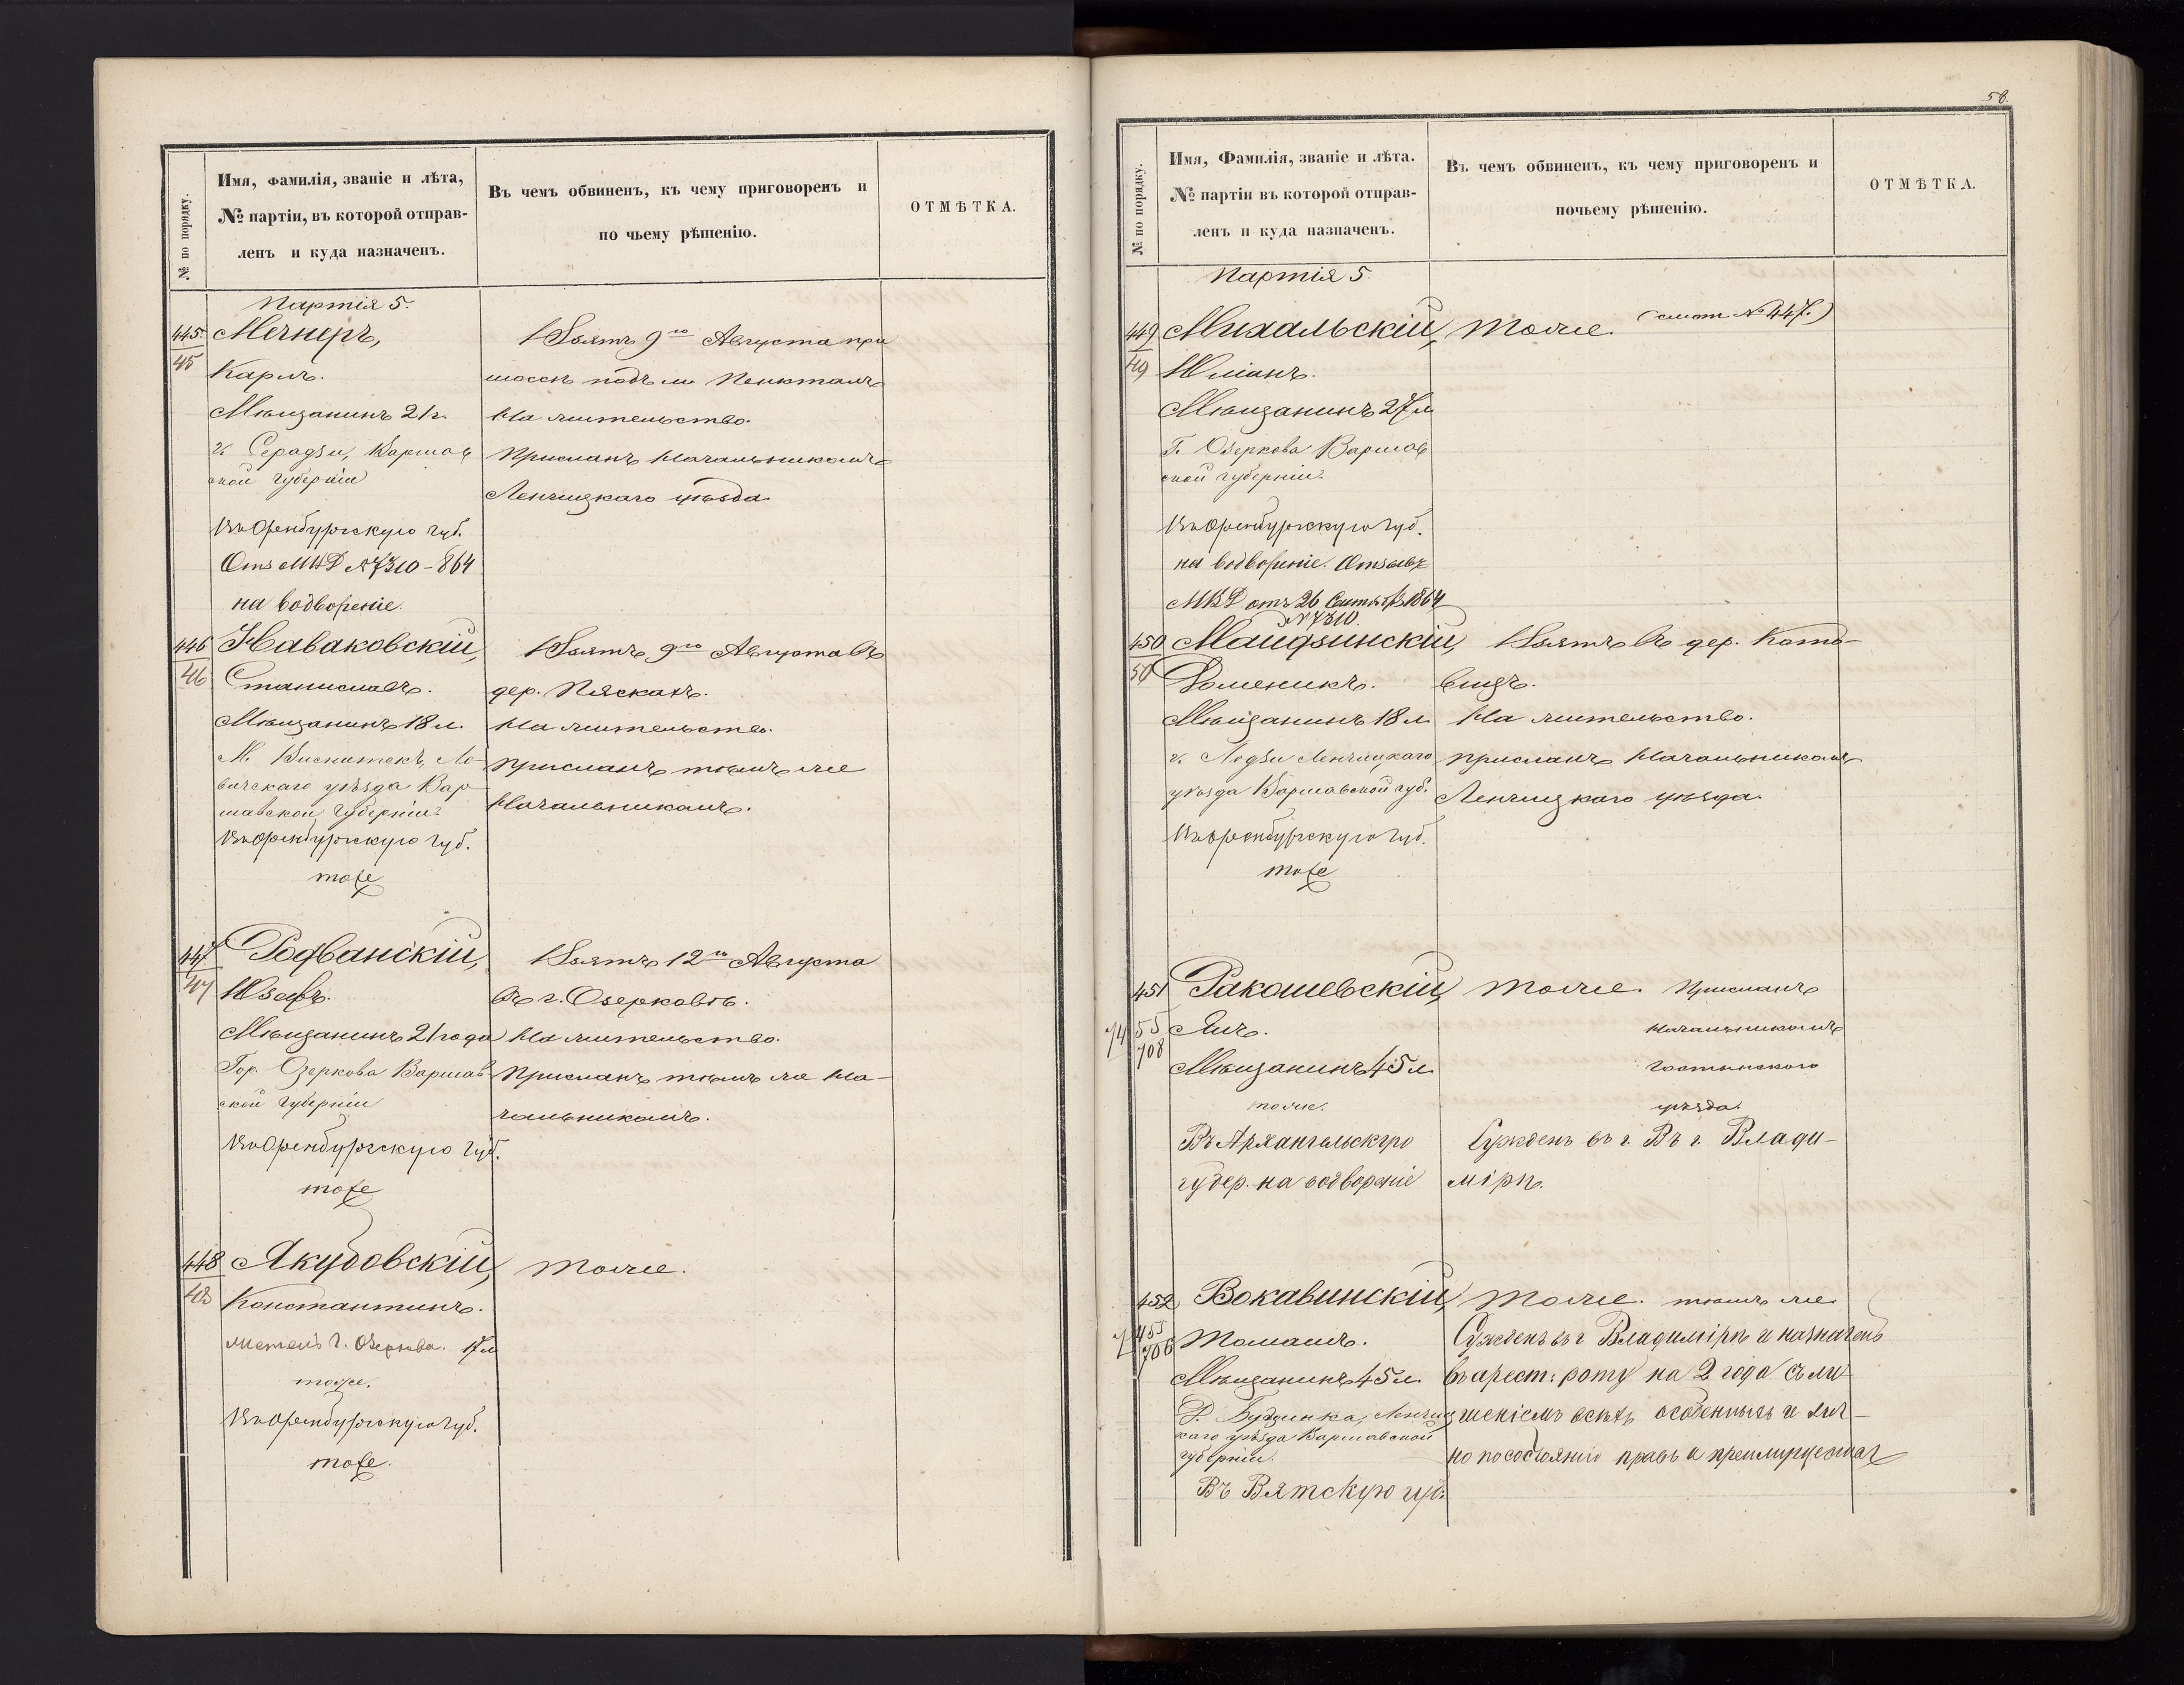 № по порядку.
Имя, фамилія, званіе и лѣта,
№ партіи, въ которой отправ-
ленъ и куда назначенъ.
Въ чемъ обвиненъ, къ чему приговоренъ и
по чьему рѣшенію.
ОТМѢТКА.
Партія 5.
445
45
Мечнеръ,
Карлъ.
Мѣщанинъ 21 г.
г. Серадзи, Варшав
ской губерніи
Въ Оренбургскую губ.
МВД № 7310-864
на водвореніе.
Взятъ 9го Августа при
шоссѣ подъ м.
На жительство.
Присланъ Начальникомъ
Ленчицкаго уѣзда
446
46
Наваковскій,
Станиславъ.
Мѣщанинъ 18 л.
М. Вискитекъ, Ло-
вичскаго уѣзда Вар
шавской губерніи
Въ Оренбургскую губ.
тоже
Взятъ 9го Августа въ
дер. Пяскахъ.
На жительство.
Присланъ тѣмъ же
Начальникомъ.
447
47
Родванскій,
Юзефъ.
Мѣщанинъ 21 года
Гор. Озеркова Варшав
ской губерніи
Въ Оренбургскую губ.
тоже
Взятъ 12го Августа
въ г. Озерковѣ.
На жительство.
Присланъ тѣмъ же На-
чальникомъ.
448
48
Якубовскій,
Константинъ.
житель г. Озеркова. 17 л
тоже.
Въ Оренбургскую губ.
тоже.
Тоже.
58.
№ по порядку.
Имя, Фамилія, званіе и лѣта.
№ партіи въ которой отправ-
ленъ и куда назначенъ.
Въ чемъ обвиненъ, къ чему приговоренъ и
почьему рѣшенію.
ОТМѢТКА.
Партія 5.
449
49
Михальскій,
Юліанъ.
Мѣщанинъ 27 л
Г. Озеркова Варшав
ской губерніи
Въ Оренбургскую губ.
на водвореніе. Отзывъ
МВД отъ 26 Сентября 1864
№ 7310.
Тоже. (смот. № 447.)
450
50
Маидзинскій,
Доменикъ.
Мѣщанинъ 18 л
г. Лодзи Ленчицкаго
уѣзда Варшавской губ.
Въ Оренбургскую губ.
тоже
Взятъ въ дер. Като-
вицъ.
На жительство.
Присланъ Начальникомъ
Ленчицкаго уѣзда.
451
55
708
Ракошевскій,
Янъ.
Мѣщанинъ 45 л
тоже.
Въ Архангельскую
губер. на водвореніе
Тоже. Присланъ
Начальникомъ
Гостынскаго
уѣзда.
Сужденъ въ г. Въ г. Влади-
мірѣ.
452
706
Вокавинскій,
Томашъ.
Мѣщанинъ 45 л.
каго уѣзда Варшавской
губерніи.
Въ Вятскую губ:
Тоже. тѣмъ же
Сужденъ въ г Владимірѣ и назначенъ
въ арест: роту на 2 года съ ли-
шеніемъ всѣхъ особенныхъ и лич-
но по состоянію правъ и преимуществъ